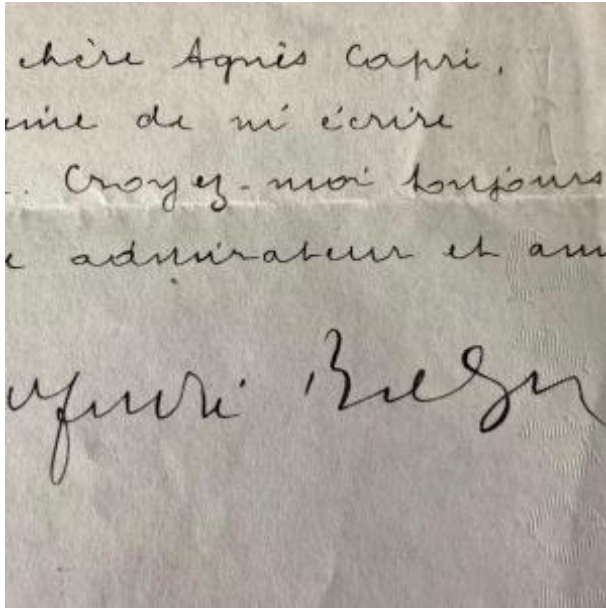 chère Agnès Capri,
de m'écrire
. Croyez-moi toujours
admirateur et am
Henri